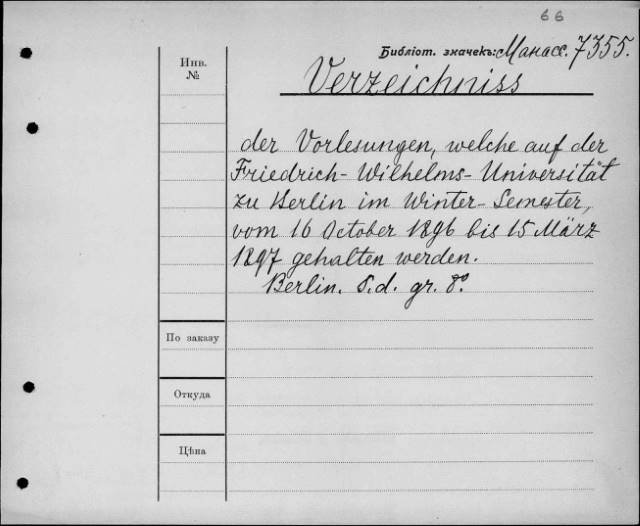 66
Библіот. значекъ: Манасс. 7355.
Инв.
№
Verzeichniss
der Vorlesungen, welche auf der
Friedrich-Wilhelms-Universität
zu Berlin im Winter-Semester,
vom 16 October 1896 bis 15 März
1897 gehalten werden.
Berlin. s.d. gr. 8º.
По заказу
Откуда
Цѣна